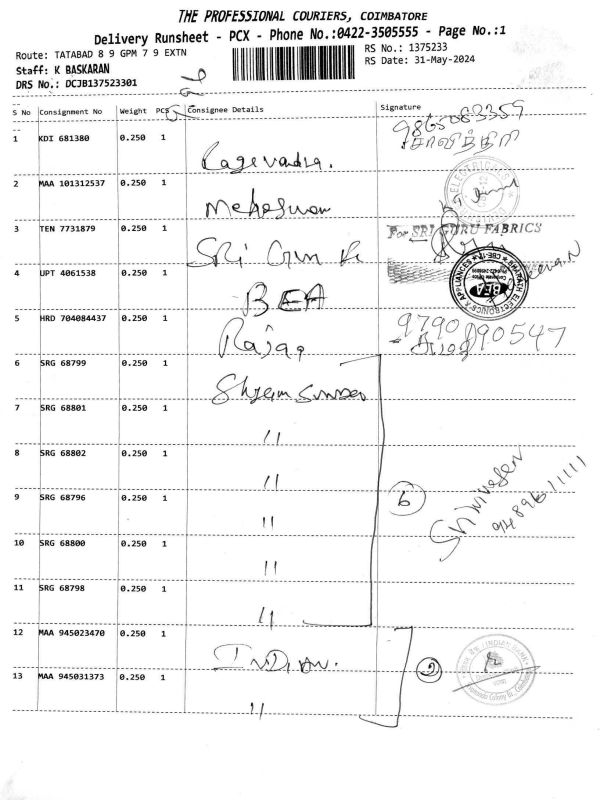 THE PROFESSIONAL COURIERS, COIMBATORE
Delivery Runsheet - PCX - Phone No.:0422-3505555 - Page No.:1
Route: TATABAD 8 9 GPM 7 9 EXTN
RS No.: 1375233
Staff: K BASKARAN
RS Date: 31-May-2024
DRS No.: DCJB137523301
S No Consignment No Weight PCS Consignee Details Signature
9865083359
1 KDI 681380 0.250 1
சாவித்திரி
ELECTRICALS
2 MAA 101312537 0.250 1
For SRI GURU FABRICS
3 TEN 7731879 0.250 1 Sri Guru
4 UPT 4061538 0.250 1 BEA
BHARATH ELECTRONICS & APPLIANCES
BEA
5 HRD 704084437 0.250 1 Rajaa 9790890547
6 SRG 68799 0.250 1 Shyam Sunder
7 SRG 68801 0.250 1 "
8 SRG 68802 0.250 1 "
Srinivasan
9489611111
9 SRG 68796 0.250 1 " 6
10 SRG 68800 0.250 1 "
11 SRG 68798 0.250 1 "
12 MAA 945023470 0.250 1 Indian.
INDIAN BANK
13 MAA 945031373 0.250 1 " 2